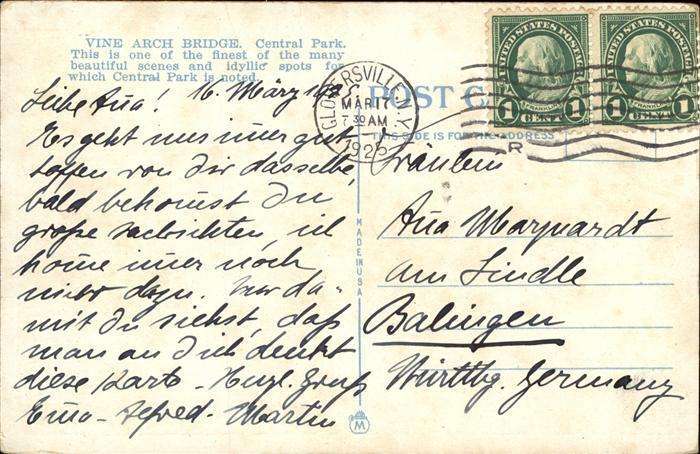 VINE ARCH BRIDGE. Central Park.
This is one of the finest of the many
beautiful scenes and idyllic spots for
which Central Park is noted.
Liebe Anna! 16. März
Es geht uns immer gut
hoffen von dir dasselbe,
bald bekommst du
große Nachrichten, ich
komme immer noch
nicht dazu. Nur da-
mit du siehst, daß
man an dich denkt
diese Karte. Herzl. Gruß
Emma - Alfred - Martin
GLOVERSVILLE, N.Y.
MAR 17
7 30 AM
1925
POST CARD
THIS SIDE IS FOR THE ADDRESS
UNITED STATES POSTAGE
FRANKLIN
1 CENT 1
UNITED STATES POSTAGE
FRANKLIN
1 CENT 1
R
MADE IN USA
M
Fräulein
Anna Marquardt
am Lindle
Balingen
Württbg. Germany